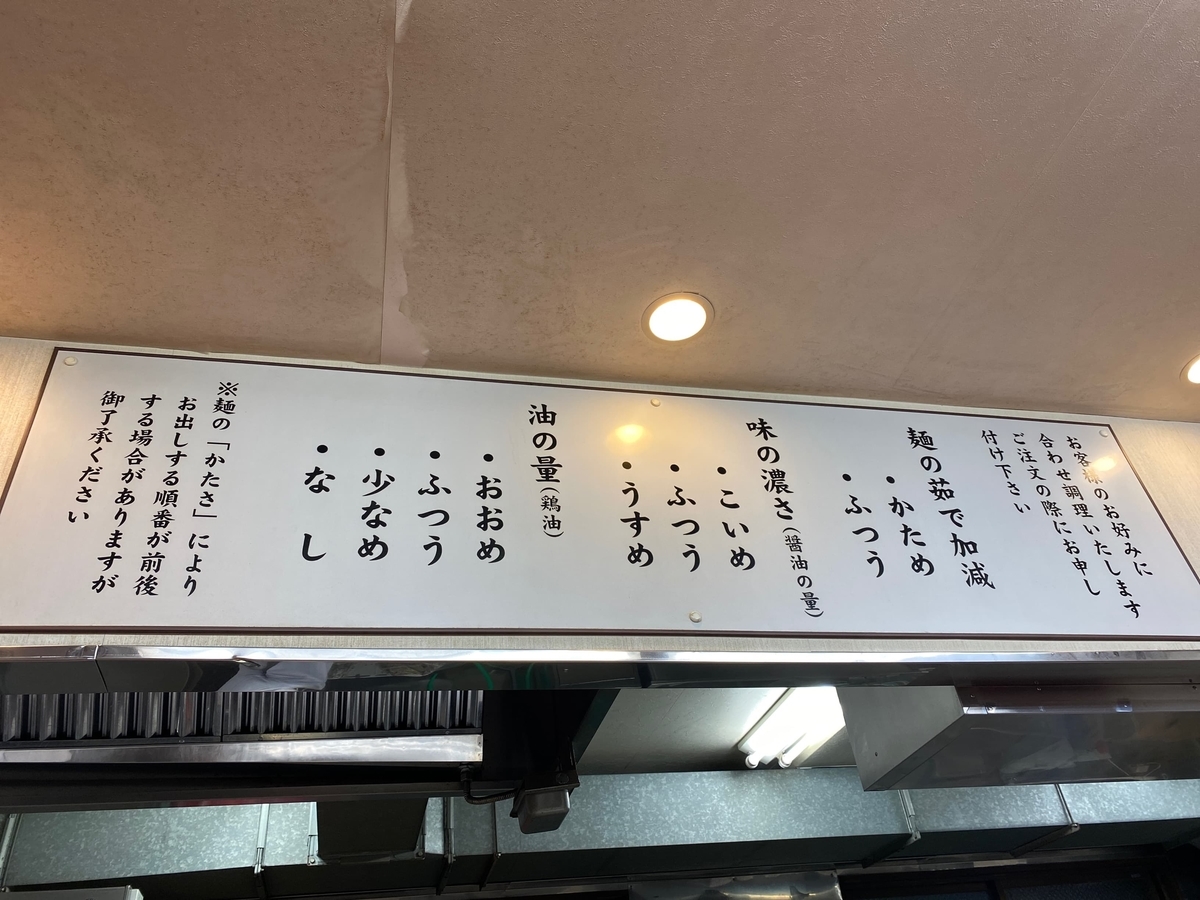 お客様のお好みに
合わせ調理いたします
ご注文の際にお申し
付け下さい
麺の茹で加減
・かため
・ふつう
味の濃さ(醤油の量)
・こいめ
・ふつう
・うすめ
油の量(鶏油)
・おおめ
・ふつう
・少なめ
・なし
※麺の「かたさ」により
お出しする順番が前後
する場合がありますが
御了承ください